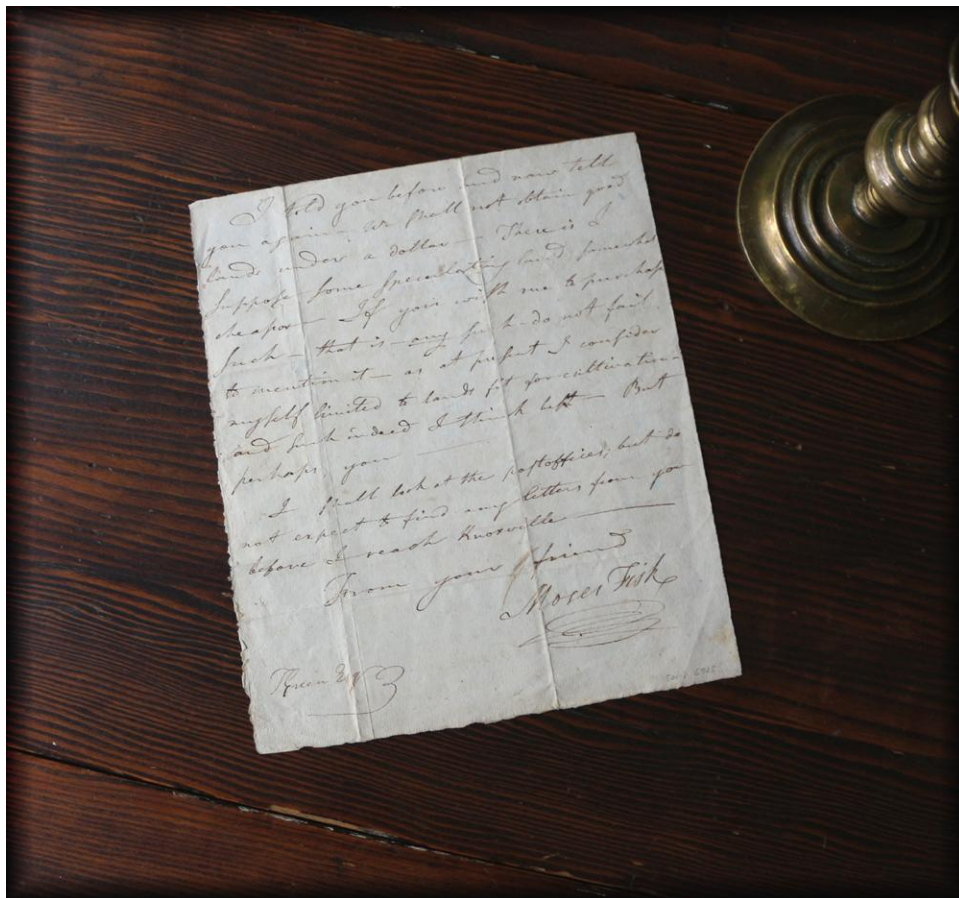 I told you before and now tell
you again — We shall not obtain good
lands under a dollar — There is I
suppose some speculating land somewhat
cheaper — If you wish me to purchase
such — that is — any such — do not fail
to mention it — as at present I consider
myself limited to lands fit for cultivation —
and such indeed I think best — But
perhaps you —
I shall look at the postoffices, but do
not expect to find any letters from you
before I reach Knoxville —
From your friend
Moses Fisk
Esq